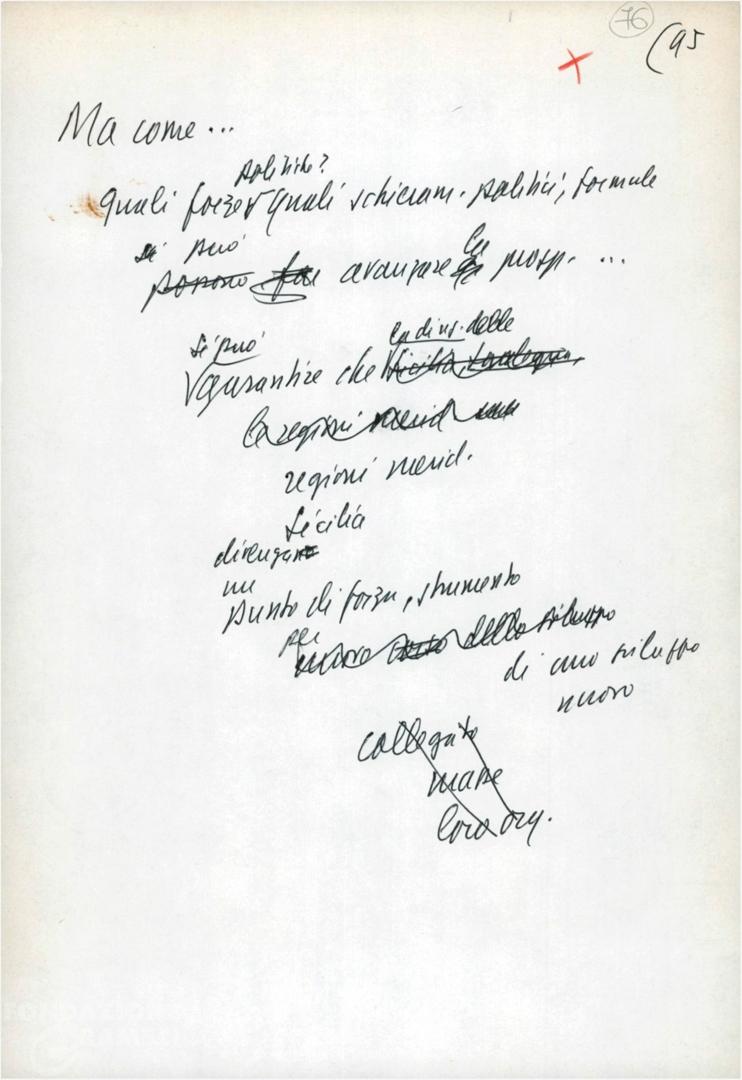 76
(95
Ma come...
politiche?
quali forze quali schieram. politici, formule
si può
possono far avanzare la prosp. ...
si può la div. delle
garantire che Sicilia, Sardegna,
le regioni merid
regioni merid.
Sicilia
divengano
un
punto di forza, strumento
per
dello sviluppo
di uno sviluppo
nuovo
collegato
masse
loro org.
FONDAZIONE